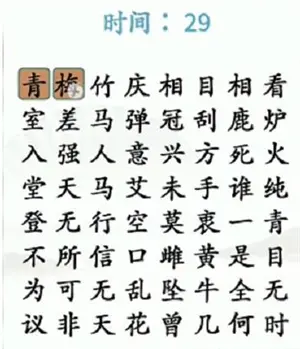 时间：29
青梅竹庆相目相看
室差马弹冠刮鹿炉
入强人意兴方死火
堂天马艾未手谁纯
登无行空莫衷一青
不所信口雌黄是目
为可无乱坠牛全无
议非天花曾几何时